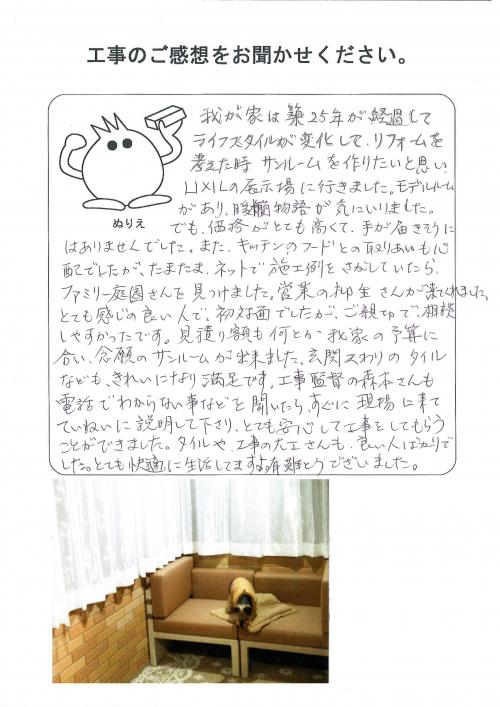 工事のご感想をお聞かせください。
ぬりえ
我が家は築25年が経過して
ライフスタイルが変化して、リフォームを
考えた時 サンルームを作りたいと思い、
LIXILの展示場に行きました。モデルルーム
があり、暖蘭物語が気にいりました。
でも、価格がとても高くて、手が届きそうに
はありませんでした。また、キッチンのフードとの取りあいも心
配でしたが、たまたま、ネットで施工例をさがしていたら、
ファミリー庭園さんを見つけました。営業の柳生さんが来てくれました。
とても感じの良い人で、初対面でしたが、ご親切で、相談
しやすかったです。見積り額も何とか我家の予算に
合い、念願のサンルームが出来ました。玄関まわりのタイル
なども、きれいになり満足です。工事監督の森本さんも
電話でわからない事などを聞いたら、すぐに現場に来て
ていねいに説明して下さり、とても安心して工事をしてもらう
ことができました。タイルや、工事の大工さんも、良い人ばかりで
した。とても快適に生活してます。有難とうございました。